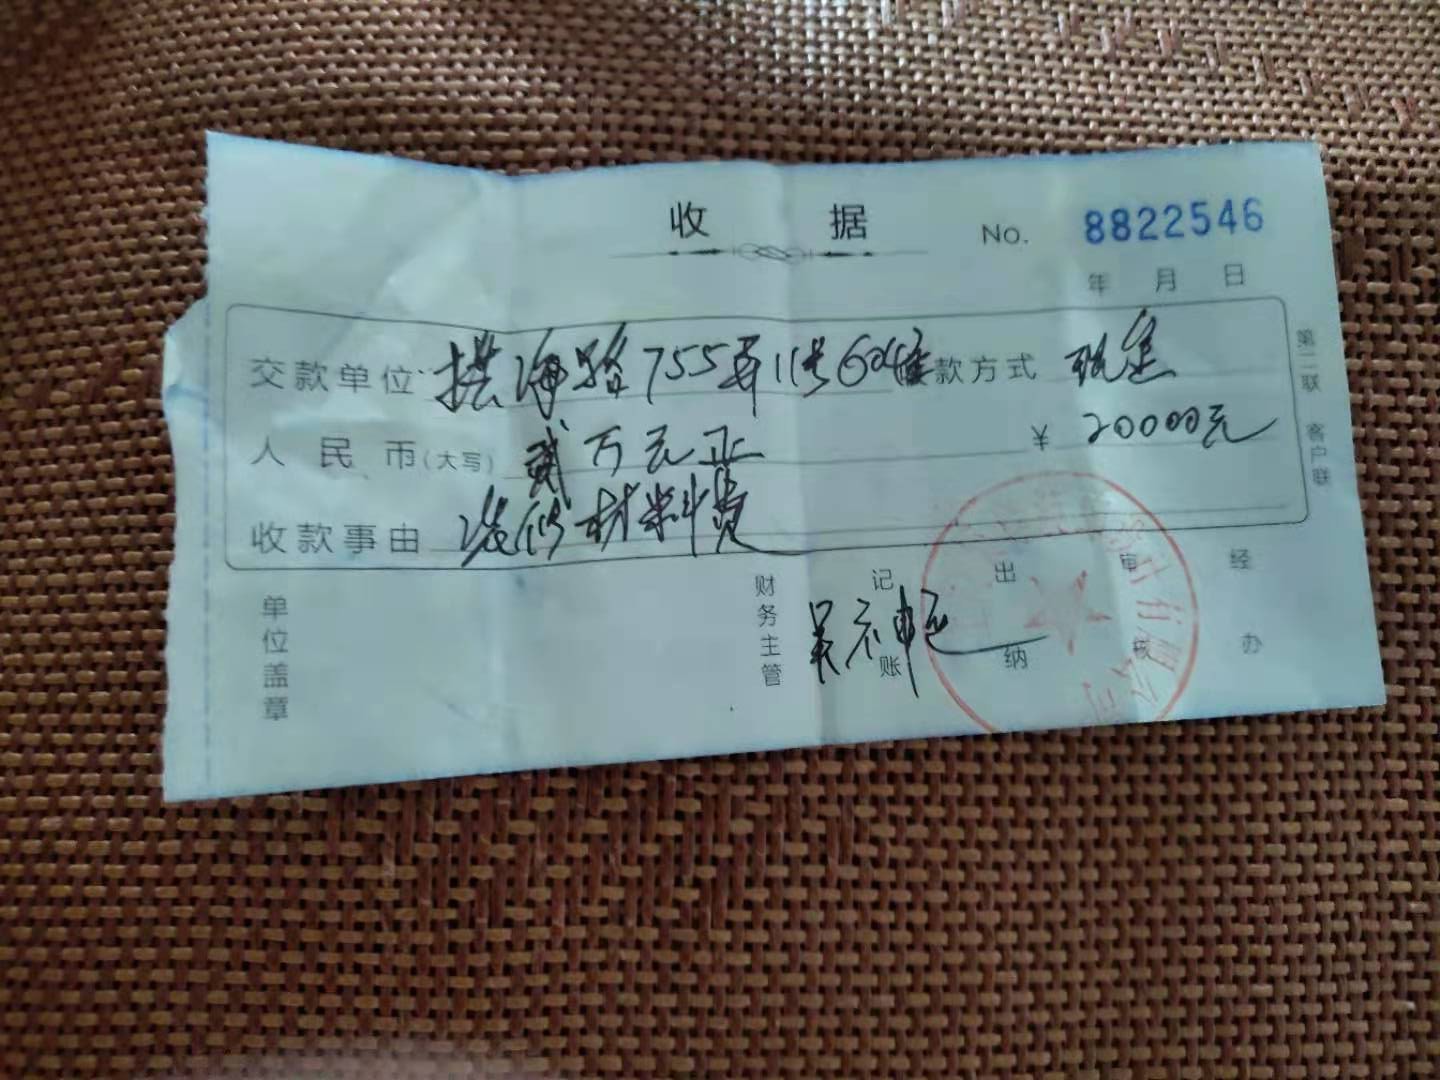 收 据 No. 8822546
年 月 日
交款单位 拱海路755弄11号604室 款方式 现金
人民币(大写) 贰万元正 ¥ 20000元
收款事由 装修材料费
第二联 客户联
单位盖章 财务主管 记账 出纳 审核 经办